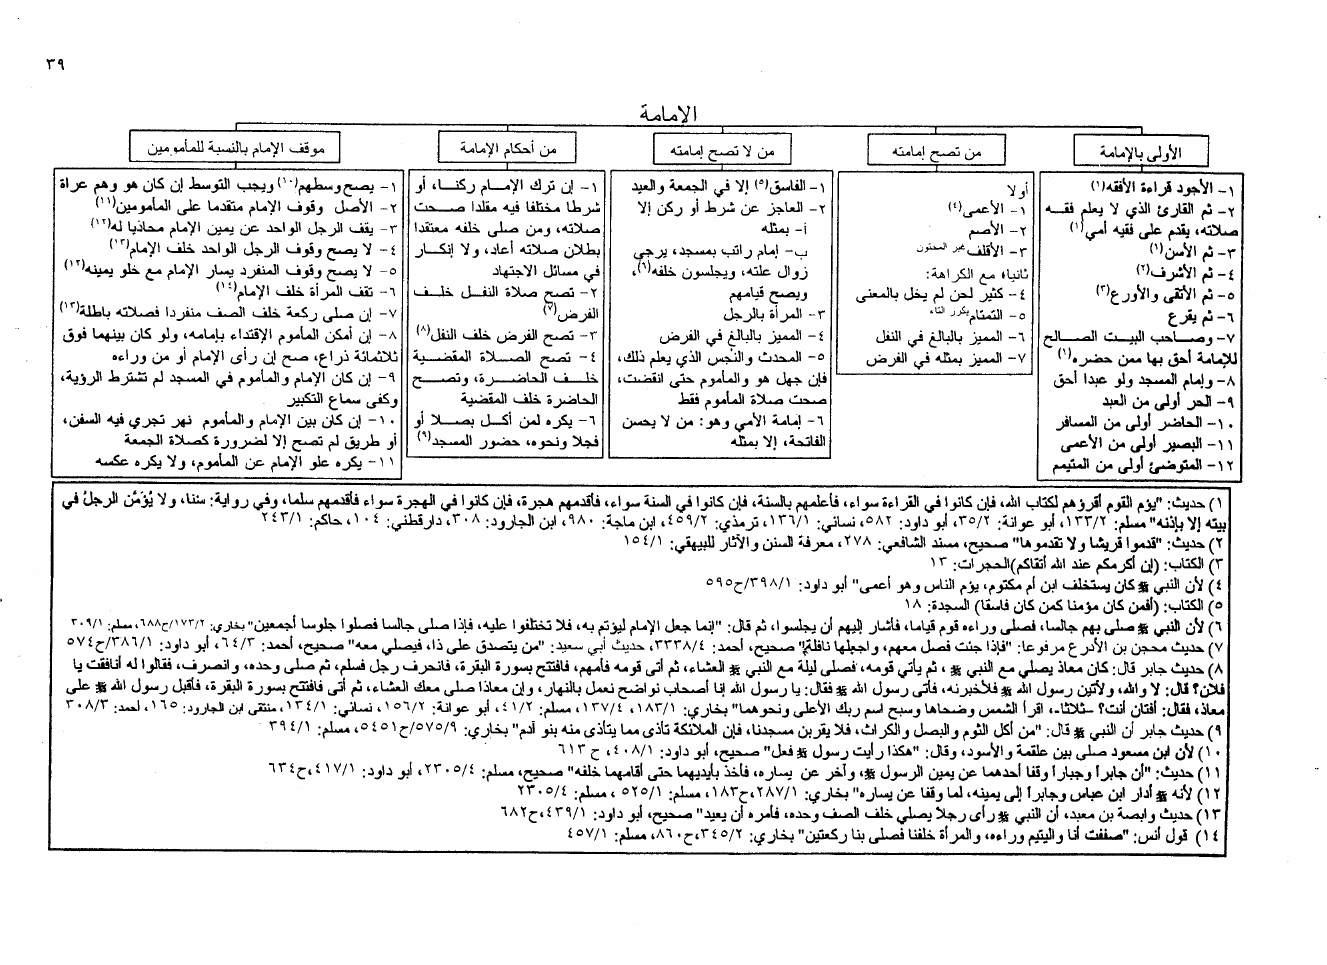 ٣٩
الإمامة
الأولى بالإمامة
١- الأجود قراءة الأفقه(١)
٢- ثم القارئ الذي لا يعلم فقـــه
صلاته، يقدم على فقيه أمي(١)
٣- ثم الأسن(١)
٤- ثم الأشرف(٢)
٥- ثم الأتقى والأورع(٣)
٦- ثم يقرع
٧- وصـــاحب البيــت الصـــالح
للإمامة أحق بها ممن حضره(١)
٨- وإمام المسجد ولو عبدا أحق
٩- الحر أولى من العبد
١٠- الحاضر أولى من المسافر
١١- البصير أولى من الأعمى
١٢- المتوضئ أولى من المتيمم
من تصح إمامته
أولا
١- الأعمى(٤)
٢- الأصم
٣- الأقلف غير المختون
ثانيا، مع الكراهة:
٤- كثير لحن لم يخل بالمعنى
٥- التمتام يكرر التاء
٦- المميز بالبالغ في النفل
٧- المميز بمثله في الفرض
من لا تصح إمامته
١- الفاسق(٥) إلا في الجمعة والعيد
٢- العاجز عن شرط أو ركن إلا
أ- بمثله
ب- إمام راتب بمسجد، يرجى
زوال علته، ويجلسون خلفه(٦)،
ويصح قيامهم
٣- المرأة بالرجل
٤- المميز بالبالغ في الفرض
٥- المحدث والنجس الذي يعلم ذلك،
فإن جهل هو والمأموم حتى انقضت،
صحت صلاة المأموم فقط
٦- إمامة الأمي وهو: من لا يحسن
الفاتحة، إلا بمثله
من أحكام الإمامة
١- إن ترك الإمــام ركنــا، أو
شرطا مختلفا فيه مقلدا صـــحت
صلاته، ومن صلى خلفه معتقدا
بطلان صلاته أعاد، ولا إنكــار
في مسائل الاجتهاد
٢- تصح صلاة النفــل خلــف
الفرض(٧)
٣- تصح الفرض خلف النفل(٨)
٤- تصح الصـــلاة المقضـــية
خلـــف الحاضـــرة، وتصـــح
الحاضرة خلف المقضية
٦- يكره لمن أكــل بصــلا أو
فجلا ونحوه، حضور المسجد(٩)
موقف الإمام بالنسبة للمأمومين
١- يصح وسطهم(١٠) ويجب التوسط إن كان هو وهم عراة
٢- الأصل وقوف الإمام متقدما على المأمومين(١١)
٣- يقف الرجل الواحد عن يمين الإمام محاذيا له(١٢)
٤- لا يصح وقوف الرجل الواحد خلف الإمام(١٣)
٥- لا يصح وقوف المنفرد يسار الإمام مع خلو يمينه(١٢)
٦- تقف المرأة خلف الإمام(١٤)
٧- إن صلى ركعة خلف الصف منفردا فصلاته باطلة(١٣)
٨- إن أمكن المأموم الإقتداء بإمامه، ولو كان بينهما فوق
ثلاثمائة ذراع، صح إن رأى الإمام أو من وراءه
٩- إن كان الإمام والمأموم في المسجد لم تشترط الرؤية،
وكفى سماع التكبير
١٠- إن كان بين الإمام والمأموم نهر تجري فيه السفن،
أو طريق لم تصح إلا لضرورة كصلاة الجمعة
١١- يكره علو الإمام عن المأموم، ولا يكره عكسه
١) حديث: "يؤم القوم أقرؤهم لكتاب الله، فإن كانوا في القراءة سواء، فأعلمهم بالسنة، فإن كانوا في السنة سواء، فأقدمهم هجرة، فإن كانوا في الهجرة سواء فأقدمهم سلما، وفي رواية: سننا، ولا يُؤمَّن الرجلُ في
بيته إلا بإذنه" مسلم: ١٣٣/٢، أبو عوانة: ٣٥/٢، أبو داود: ٥٨٢، نسائي: ١٣٦/١، ترمذي: ٤٥٩/٢، ابن ماجة: ٩٨٠، ابن الجارود: ٣٠٨، دارقطني: ١٠٤، حاكم: ٢٤٣/١
٢) حديث: "قدموا قريشا ولا تقدموها" صحيح، مسند الشافعي: ٢٧٨، معرفة السنن والآثار للبيهقي: ١٥٤/١
٣) الكتاب: (إن أكرمكم عند الله أتقاكم)الحجرات: ١٣
٤) لأن النبي ﷺ كان يستخلف ابن أم مكتوم، يؤم الناس وهو أعمى" أبو داود: ٣٩٨/١/ح٥٩٥
٥) الكتاب: (أفمن كان مؤمنا كمن كان فاسقا) السجدة: ١٨
٦) لأن النبي ﷺ صلى بهم جالسا، فصلى وراءه قوم قياما، فأشار إليهم أن يجلسوا، ثم قال: "إنما جعل الإمام ليؤتم به، فلا تختلفوا عليه، فإذا صلى جالسا فصلوا جلوسا أجمعين" بخاري: ١٧٣/٢/ح٦٨٨، مسلم: ٣٠٩/١
٧) حديث محجن بن الأدرع مرفوعا: "فإذا جئت فصل معهم، واجعلها نافلة" صحيح، أحمد: ٣٣٨/٤، حديث أبي سعيد: "من يتصدق على ذا، فيصلي معه" صحيح، أحمد: ٦٤/٣، أبو داود: ٣٨٦/١/ح٥٧٤
٨) حديث جابر قال: كان معاذ يصلي مع النبي ﷺ ، ثم يأتي قومه، فصلى ليلة مع النبي ﷺ العشاء، ثم أتى قومه فأمهم، فافتتح بسورة البقرة، فانحرف رجل فسلم، ثم صلى وحده، وانصرف، فقالوا له أنافقت يا
فلان؟ قال: لا والله، ولآتين رسول الله ﷺ فلأخبرنه، فأتى رسول الله ﷺ فقال: يا رسول الله إنا أصحاب نواضح نعمل بالنهار، وإن معاذا صلى معك العشاء، ثم أتى فافتتح بسورة البقرة، فأقبل رسول الله ﷺ على
معاذ، فقال: أفتان أنت؟ -ثلاثا-، اقرأ الشمس وضحاها وسبح اسم ربك الأعلى ونحوهما" بخاري: ١٨٣/١، ١٣٧/٤، مسلم: ٤١/٢، أبو عوانة: ١٥٦/٢، نسائي: ١٣٤/١، منتقى ابن الجارود: ١٦٥، أحمد: ٣٠٨/٣
٩) حديث جابر أن النبي ﷺ قال: "من أكل الثوم والبصل والكراث، فلا يقربن مسجدنا، فإن الملائكة تأذى مما يتأذى منه بنو آدم" بخاري: ٥٧٥/٩/ح٥٤٥١، مسلم: ٣٩٤/١
١٠) لأن ابن مسعود صلى بين علقمة والأسود، وقال: "هكذا رأيت رسول ﷺ فعل" صحيح، أبو داود: ٤٠٨/١، ح ٦١٣
١١) حديث: "أن جابراً وجباراً وقفا أحدهما عن يمين الرسول ﷺ، وآخر عن يساره، فأخذ بأيديهما حتى أقامهما خلفه" صحيح، مسلم: ٢٣٠٥/٤، أبو داود: ٤١٧/١،ح٦٣٤
١٢) لأنه ﷺ أدار ابن عباس وجابراً إلى يمينه، لما وقفا عن يساره" بخاري: ٢٨٧/١،ح١٨٣، مسلم: ٥٢٥/١ ، مسلم: ٢٣٠٥/٤
١٣) حديث وابصة بن معبد، أن النبي ﷺ رأى رجلا يصلي خلف الصف وحده، فأمره أن يعيد" صحيح، أبو داود: ٤٣٩/١،ح٦٨٢
١٤) قول أنس: "صففت أنا واليتيم وراءه، والمرأة خلفنا فصلى بنا ركعتين" بخاري: ٣٤٥/٢،ح٨٦٠، مسلم: ٤٥٧/١